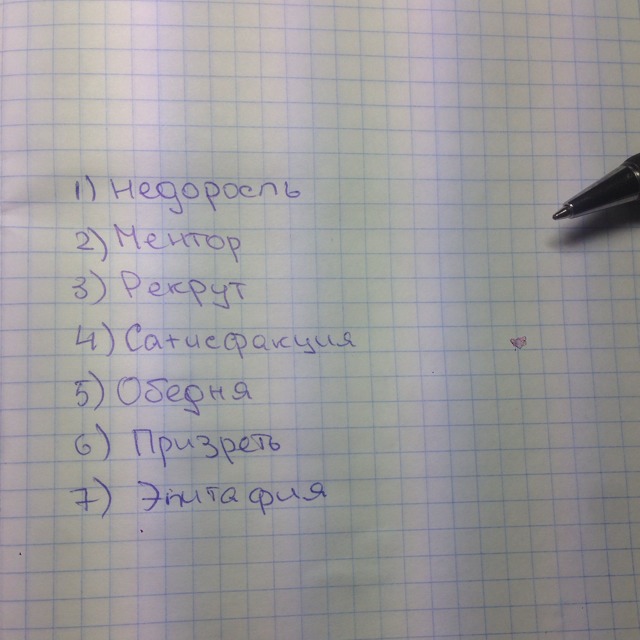 1) Недоросль
2) Ментор
3) Рекрут
4) Сатисфакция
5) Обедня
6) Призреть
7) Эпитафия